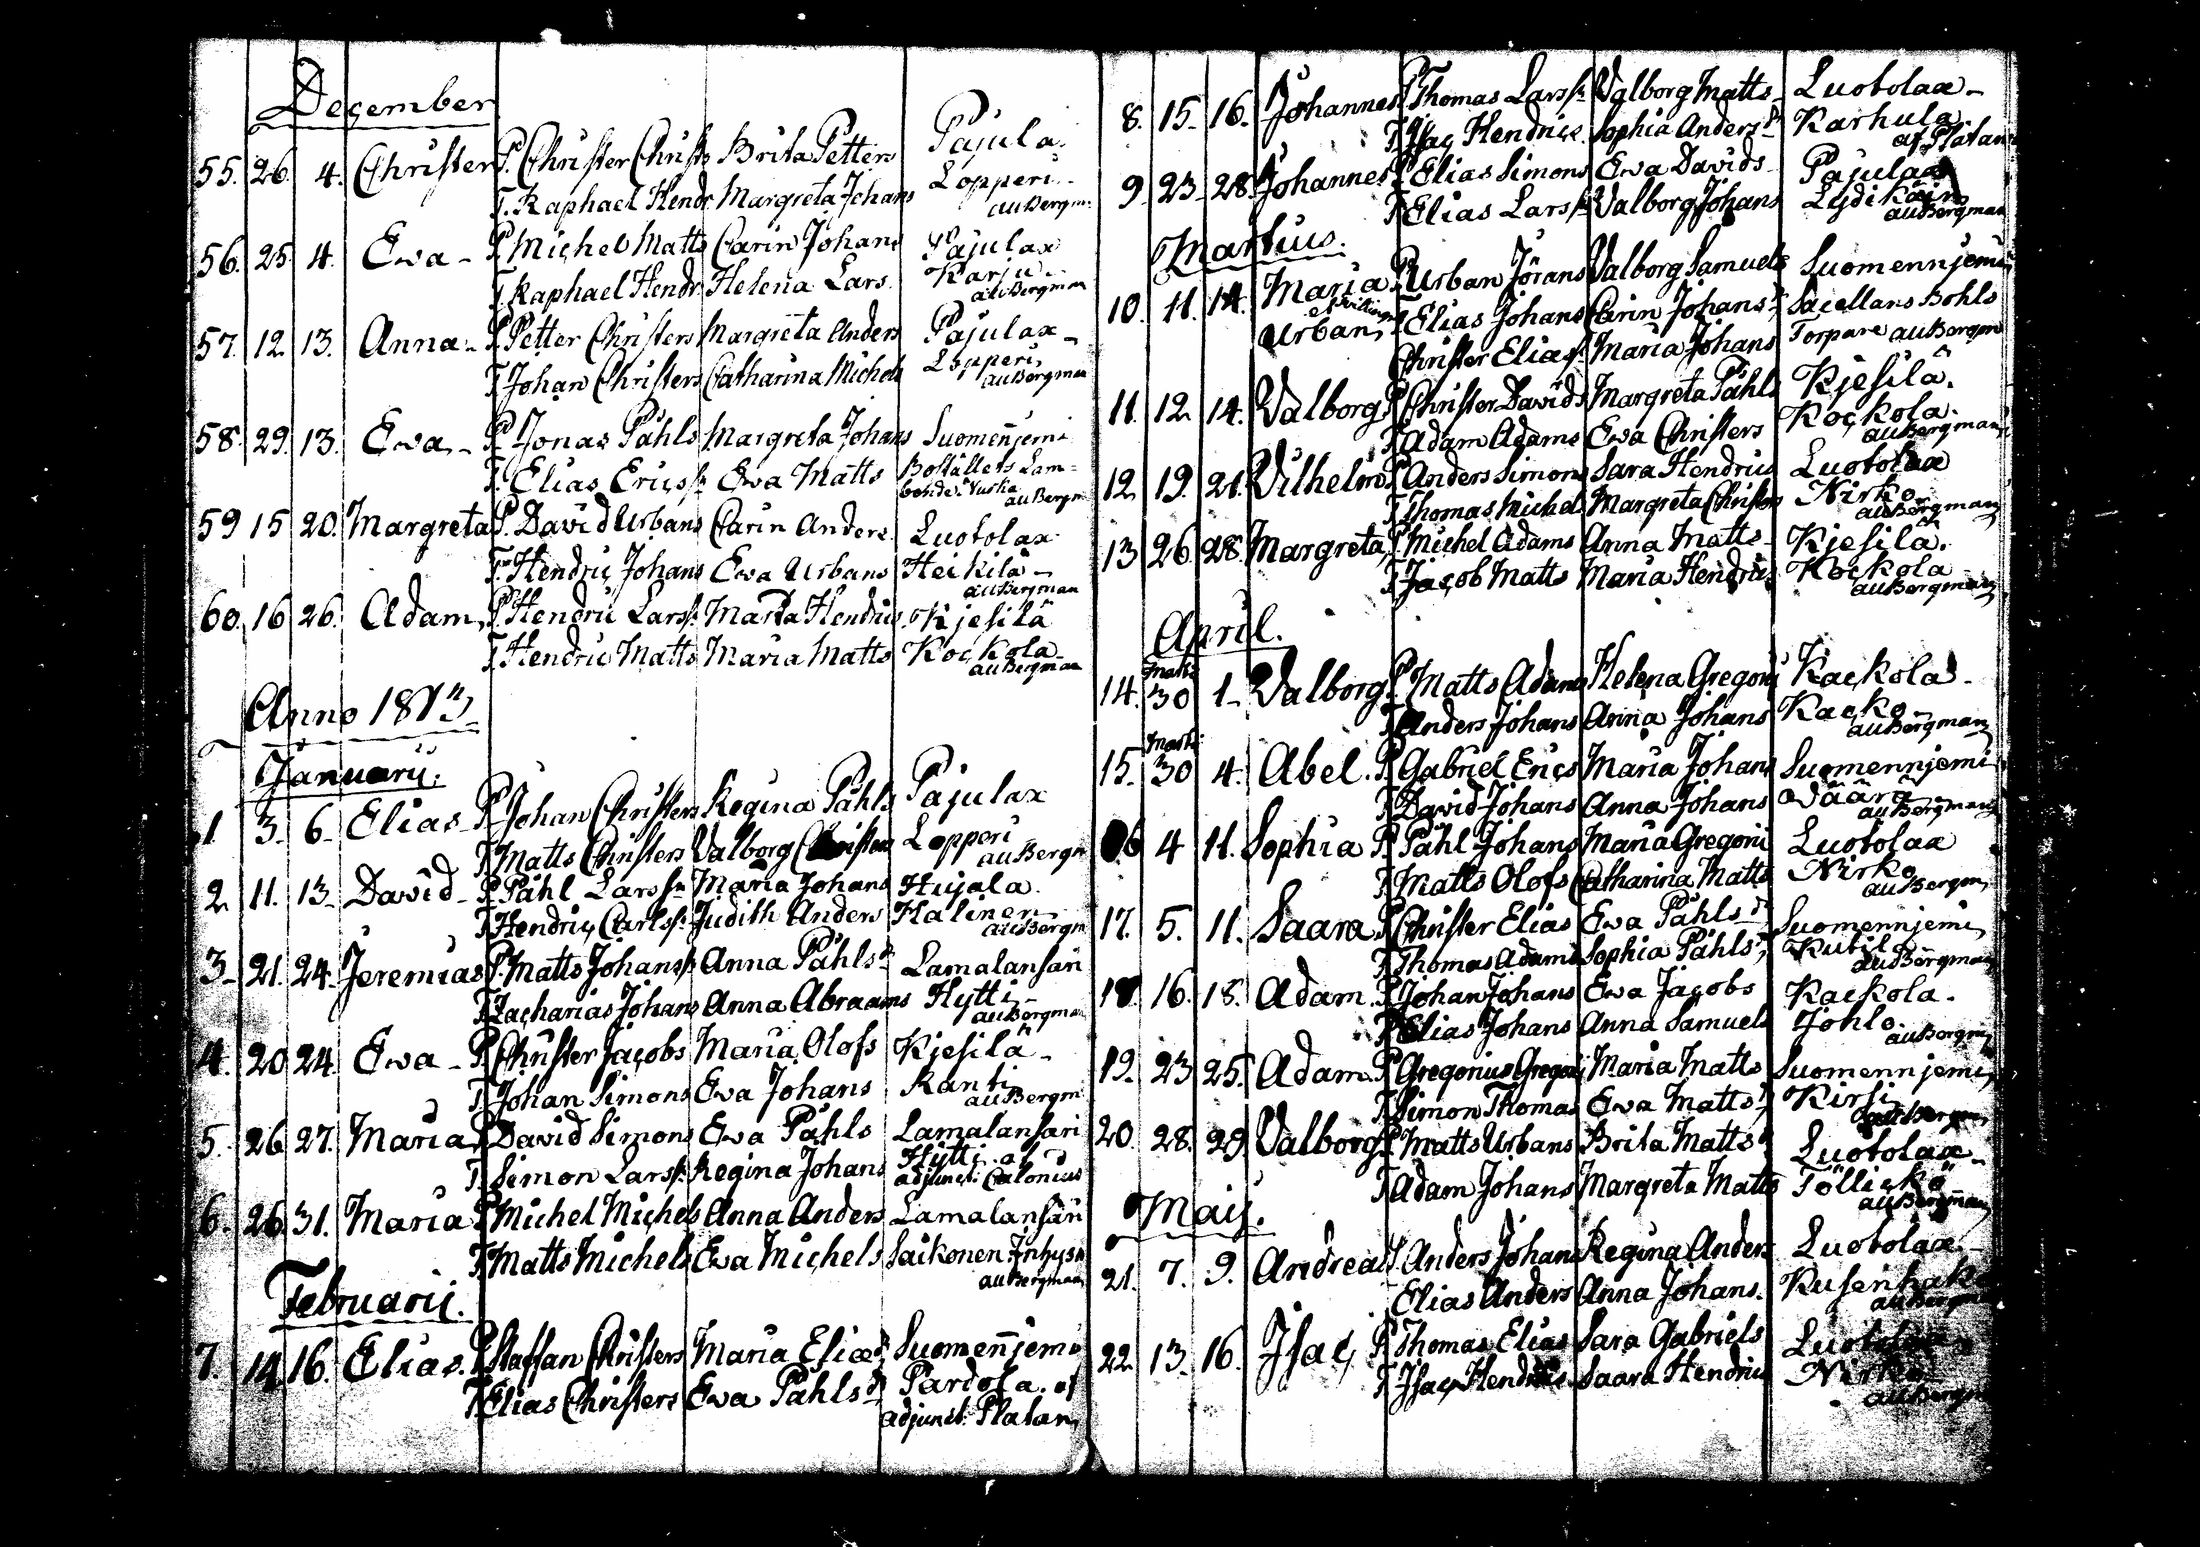 December
55. 26. 4. Christer P. Christer Christ. Brita Petters Pajula.
T. Raphael Hendr. Margreta Johans Lopperi.
au Bergm.
56. 25. 4. Ewa - P. Michel Matts Carin Johans Pajulax
T. Raphael Hendr. Helena Lars. Karju -
au Bergman
57. 12. 13. Anna - P. Petter Christers Margreta Anders Pajulax -
T. Johan Christers Catharina Michels Lopperi,
au Bergman
58. 29. 13. Ewa - P. Jonas Påhls Margreta Johans Suomenjemi
T. Elias Erics sn Ewa Matts Boställets Lam=
bonde
au Bergm
59 15 20. Margreta P. David Urbans Carin Anders Luotolax
T. Hendric Johans Ewa Urbans Heikilä -
au Bergman
60. 16 26. Adam, P. Hendric Larss. Maria Hendrics Kjesilä
T. Hendric Matts Maria Matts Kockola -
au Bergman
Anno 1813
Januarii.
1 3. 6. Elias - P. Johan Christers Regina Påhls Pajulax
T. Matts Christers Valborg Christers Lopperi
au Bergm
2. 11. 13. David - P. Påhl Larssn Maria Johans Hujala.
T. Hendric Carlss. Judith Anders Halinen
au Bergm
3. 21. 24. Jeremias P. Matts Johanss. Anna Påhlsdr Lamalansari
T. Zacharias Johans Anna Abraams Hytti -
au Bergman
4. 20 24. Ewa - P. Christer Jacobs Maria Olofs Kjesilä -
T. Johan Simons Ewa Johans Ranti
au Bergm
5. 26 27. Maria, P. David Simons Ewa Påhls Lamalansari
T. Simon Larss. Regina Johans Hytti. af
adjunct. Calonius
6. 26. 31. Maria P. Michel Michels Anna Anders Lamalansari
T. Matts Michels Ewa Michels Saikonen Inhysn
au Bergman
Februarii.
7. 14. 16. Elias. P. Staffan Christers Maria Eliædr Suomenjemi
T. Elias Christers Ewa Påhlsdr Pardola. af
adjunct. Platan,
8. 15. 16. Johannes P. Thomas Larss. Valborg Matts - Luotolax -
T. Isac Hendrics. Sophia Andersdr Karhula
af Platan
9. 23. 28. Johannes P. Elias Simons Ewa Davids - Pajulax
T. Elias Larss. Valborg Johans Lydikäin
au Bergman
Martius.
10. 11. 14. Maria P. Urban Jörans Valborg Samuels Suomennjemi
et
Urban, T. Elias Johans Carin Johansdr, Sacellans Bohls
Christer Eliæs. Maria Johans Torpare au Bergm
11. 12. 14. Valborg P. Christer Davids Margreta Påhls Kjesilä.
T. Adam Adams Ewa Christers Kockola.
au Bergman
12. 19. 21. Vilhelm P. Anders Simons Sara Hendrics Luotolax
T. Thomas Michels Margreta Christers Nirko
au Bergman
13 26 28. Margreta, P. Michel Adams Anna Matts - Kjesilä.
T. Jacob Matts Maria Hendrics Kockola
au Bergman
April.
Marti
14. 30 1 - Valborg P. Matts Adams Helena Gregorii Kackola -
T. Anders Johans Anna Johans Kacko -
au Bergman
Marti
15. 30 4. Abel. P. Gabriel Erics Maria Johans Suomennjemi
T. David Johans Anna Johans Väärä
au Bergman
16 4 11. Sophia P. Påhl Johans Maria Gregorii Luotolax
T. Matts Olofs Catharina Matts Nirko
au Bergm,
17. 5. 11. Saara P. Christer Elias Ewa Påhlsdr Suomennjemi,
T. Thomas Adams Sophia Påhlsdr,
au Bergman
18. 16. 18. Adam. P. Johan Johans Ewa Jacobs Kackola.
T. Elias Johans Anna Samuels Johlo.
au Bergm
19. 23 25. Adam. P. Gregorius Gregorii Maria Matts Suomennjemi,
T. Simon Thomas Ewa Mattsdr Kirsi
au Bergm
20. 28. 29. Valborg P. Matts Urbans Brita Mattsdr Luotolax -
T. Adam Johans Margreta Matts Töllickö
au Bergman
Maij.
21. 7. 9. Andreas P. Anders Johans Regina Anders Luotolax -
Elias Anders Anna Johans. Kusenhako
au Bergman
22. 13. 16. Isac P. Thomas Elias Sara Gabriels Luotolax
T. Isac Hendrics Saara Hendrics Nirko
au Bergm